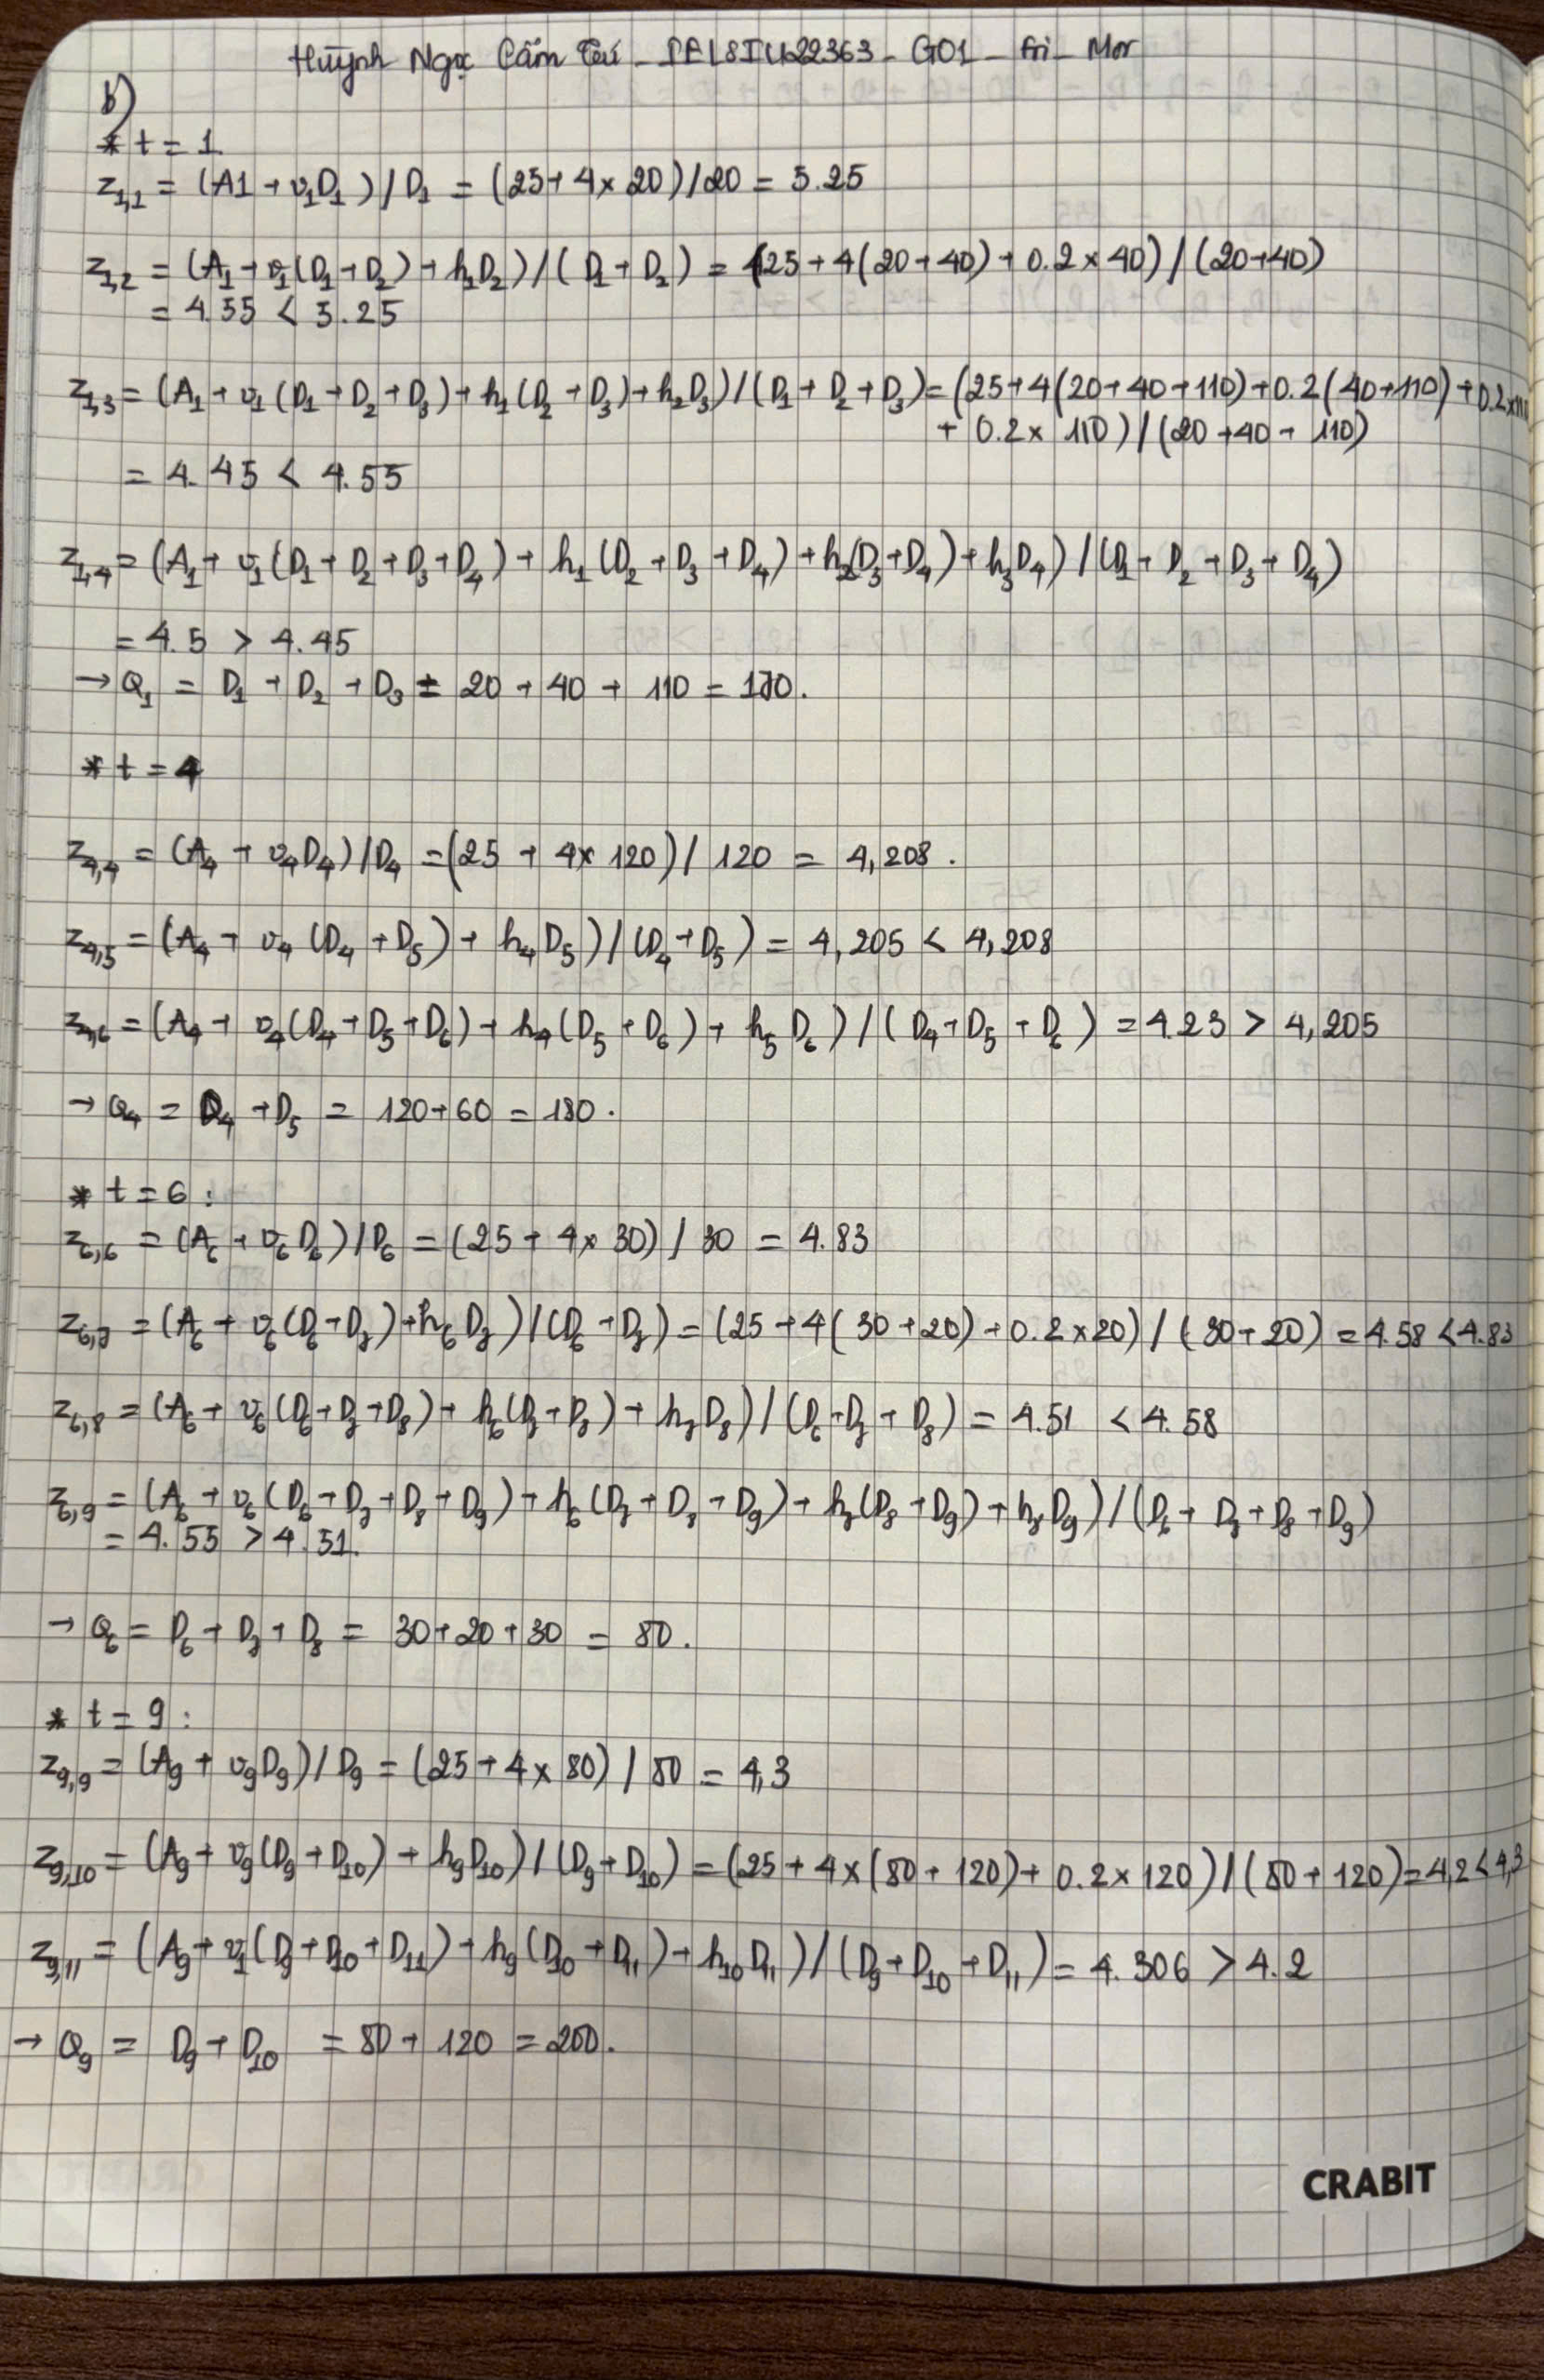 Huỳnh Ngọc Cẩm Tú - IELSIU22363 - G01 - Fri - Mor
b)
* t = 1
z₁,₁ = (A1 + v₁D₁) / D₁ = (25 + 4 × 20) / 20 = 5.25
z₁,₂ = (A₁ + v₁(D₁ + D₂) + h₁D₂) / (D₁ + D₂) = (25 + 4(20 + 40) + 0.2 × 40) / (20 + 40)
= 4.55 < 5.25
z₁,₃ = (A₁ + v₁(D₁ + D₂ + D₃) + h₁(D₂ + D₃) + h₂D₃) / (D₁ + D₂ + D₃) = (25 + 4(20 + 40 + 110) + 0.2(40 + 110) + 0.2 × 110
+ 0.2 × 110) / (20 + 40 + 110)
= 4.45 < 4.55
z₁,₄ = (A₁ + v₁(D₁ + D₂ + D₃ + D₄) + h₁(D₂ + D₃ + D₄) + h₂(D₃ + D₄) + h₃D₄) / (D₁ + D₂ + D₃ + D₄)
= 4.5 > 4.45
→ Q₁ = D₁ + D₂ + D₃ = 20 + 40 + 110 = 170.
* t = 4
z₄,₄ = (A₄ + v₄D₄) / D₄ = (25 + 4 × 120) / 120 = 4,208.
z₄,₅ = (A₄ + v₄(D₄ + D₅) + h₄D₅) / (D₄ + D₅) = 4,205 < 4,208
z₄,₆ = (A₄ + v₄(D₄ + D₅ + D₆) + h₄(D₅ + D₆) + h₅D₆) / (D₄ + D₅ + D₆) = 4.23 > 4,205
→ Q₄ = D₄ + D₅ = 120 + 60 = 180.
* t = 6 :
z₆,₆ = (A₆ + v₆D₆) / D₆ = (25 + 4 × 30) / 30 = 4.83
z₆,₇ = (A₆ + v₆(D₆ + D₇) + h₆D₇) / (D₆ + D₇) = (25 + 4(30 + 20) + 0.2 × 20) / (30 + 20) = 4.58 < 4.83
z₆,₈ = (A₆ + v₆(D₆ + D₇ + D₈) + h₆(D₇ + D₈) + h₇D₈) / (D₆ + D₇ + D₈) = 4.51 < 4.58
z₆,₉ = (A₆ + v₆(D₆ + D₇ + D₈ + D₉) + h₆(D₇ + D₈ + D₉) + h₇(D₈ + D₉) + h₈D₉) / (D₆ + D₇ + D₈ + D₉)
= 4.55 > 4.51.
→ Q₆ = D₆ + D₇ + D₈ = 30 + 20 + 30 = 80.
* t = 9 :
z₉,₉ = (A₉ + v₉D₉) / D₉ = (25 + 4 × 80) / 80 = 4,3
z₉,₁₀ = (A₉ + v₉(D₉ + D₁₀) + h₉D₁₀) / (D₉ + D₁₀) = (25 + 4 × (80 + 120) + 0.2 × 120) / (80 + 120) = 4,2 < 4,3
z₉,₁₁ = (A₉ + v₁(D₉ + D₁₀ + D₁₁) + h₉(D₁₀ + D₁₁) + h₁₀D₁₁) / (D₉ + D₁₀ + D₁₁) = 4.306 > 4.2
→ Q₉ = D₉ + D₁₀ = 80 + 120 = 200.
CRABIT